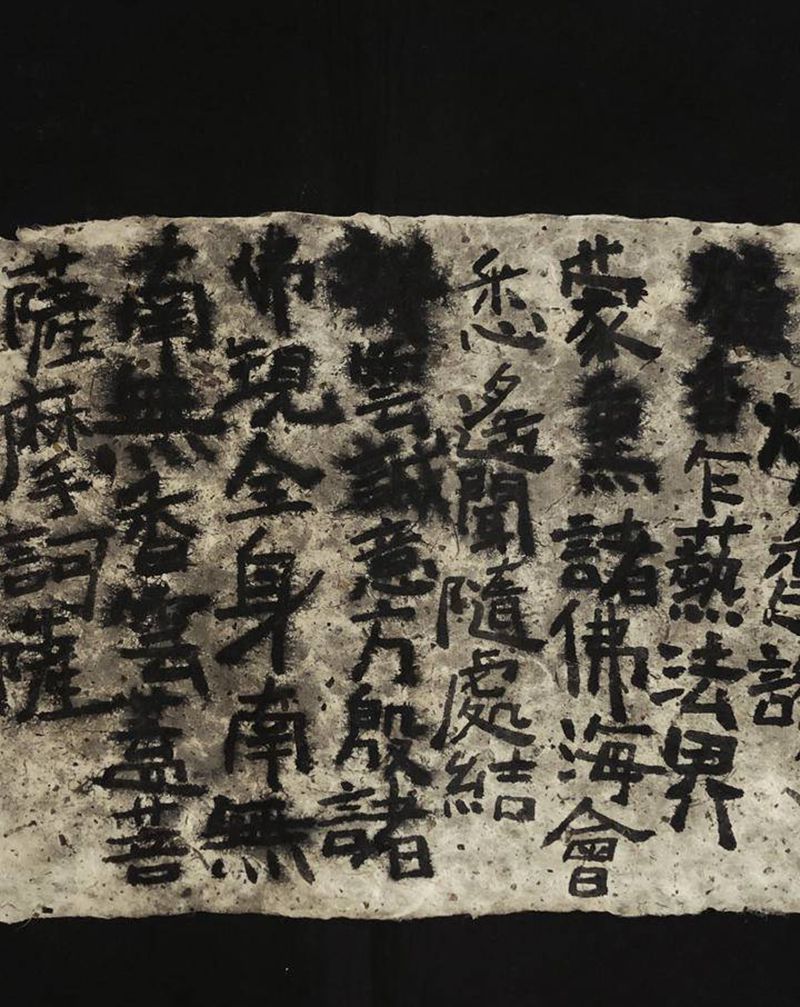 香乍爇法界
蒙熏諸佛海會
悉遙聞隨處結
雲誠意方殷諸
佛現全身南無
南無香雲蓋菩
薩摩訶薩